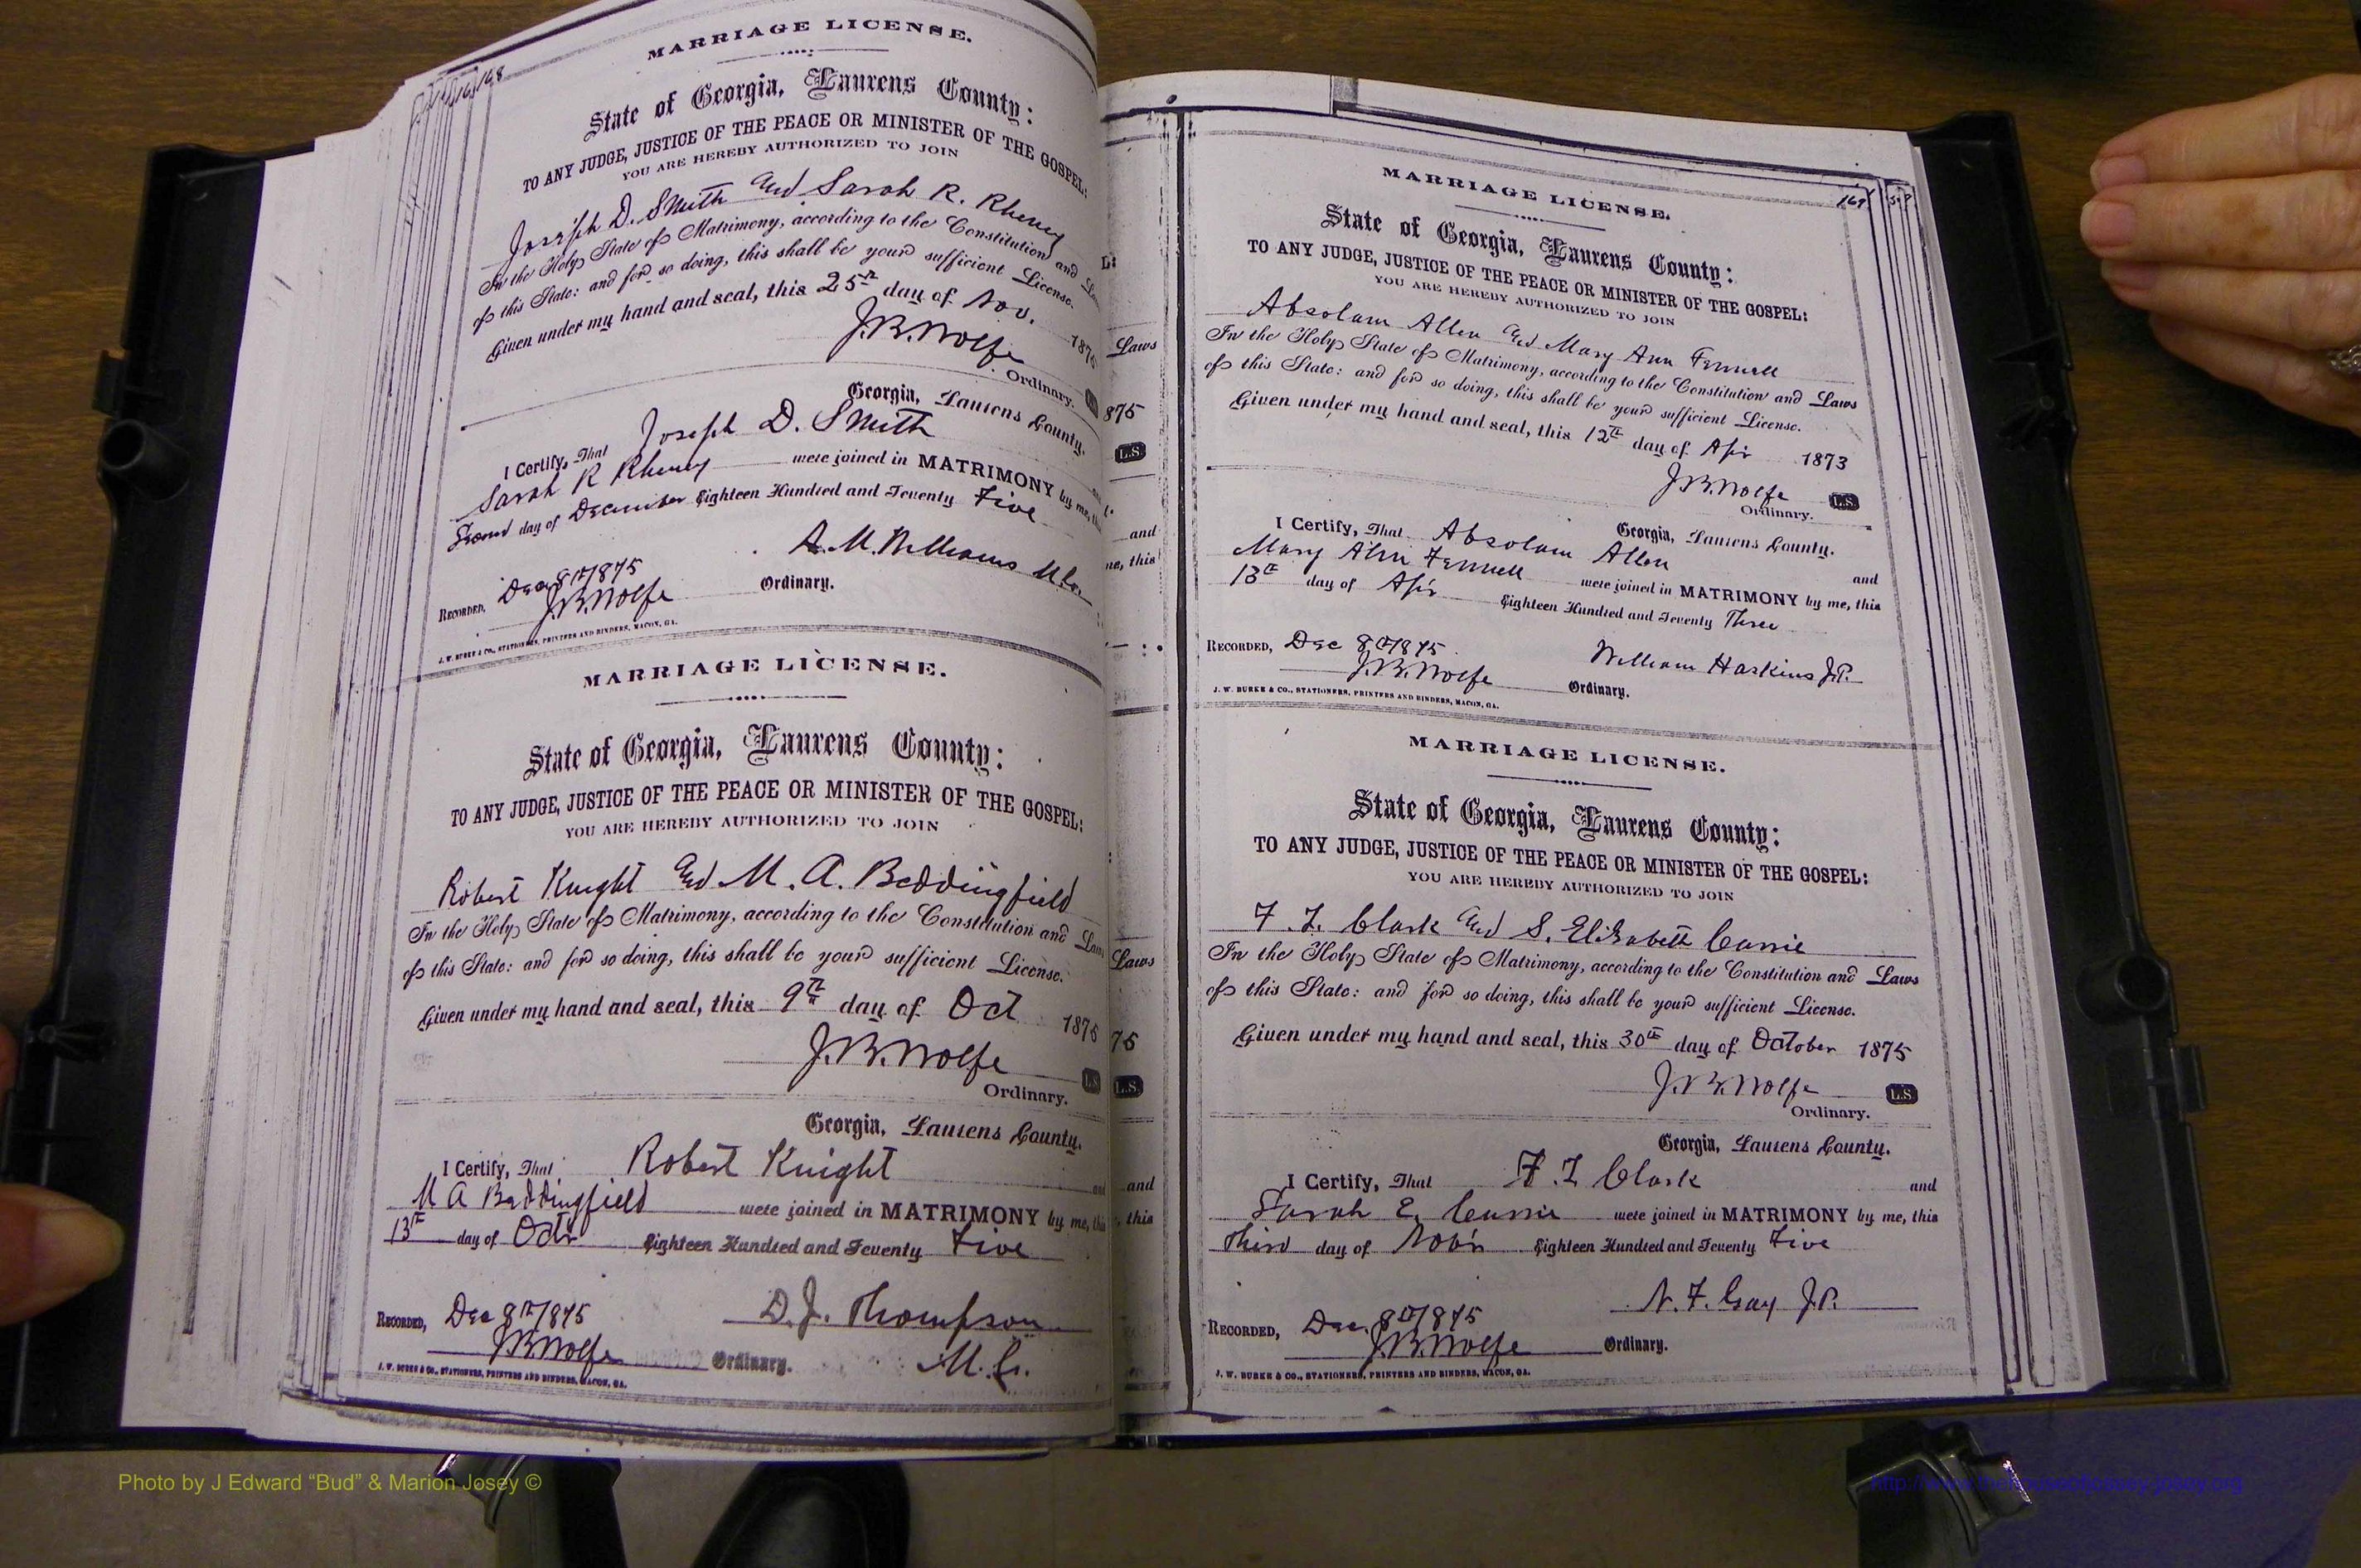 168
MARRIAGE LICENSE.
State of Georgia, Laurens County:
TO ANY JUDGE, JUSTICE OF THE PEACE OR MINISTER OF THE GOSPEL:
YOU ARE HEREBY AUTHORIZED TO JOIN
Joseph D. Smith and Sarah R. Rheney
In the Holy State of Matrimony, according to the Constitution and
of this State: and for so doing, this shall be your sufficient License.
Given under my hand and seal, this 25th day of Nov. 187
J.B. Wolfe
Ordinary.
Georgia, Laurens County.
I Certify, That Joseph D. Smith
Sarah R Rheney were joined in MATRIMONY by me,
Second day of December Eighteen Hundred and Seventy Five
A. M. Williams
Recorded, Dec 8th/1875
J.B. Wolfe Ordinary.
J. W. BURKE & CO., STATIONERS, PRINTERS AND BINDERS, MACON, GA.
MARRIAGE LICENSE.
State of Georgia, Laurens County:
TO ANY JUDGE, JUSTICE OF THE PEACE OR MINISTER OF THE GOSPEL:
YOU ARE HEREBY AUTHORIZED TO JOIN
Robert Knight and M. A. Beddingfield
In the Holy State of Matrimony, according to the Constitution and Laws
of this State: and for so doing, this shall be your sufficient License.
Given under my hand and seal, this 9th day of Oct 1875
J.B. Wolfe L.S.
Ordinary.
Georgia, Laurens County.
I Certify, That Robert Knight and
M A Beddingfield were joined in MATRIMONY by me, this
13th day of Octr Eighteen Hundred and Seventy Five
D. J. Thompson
Recorded, Dec 8th/1875
J.B. Wolfe Ordinary. M. G.
J. W. BURKE & CO., STATIONERS, PRINTERS AND BINDERS, MACON, GA.
Laws
875
L.S.
and
me, this
Laws
75
L.S.
and
this
169
MARRIAGE LICENSE.
State of Georgia, Laurens County:
TO ANY JUDGE, JUSTICE OF THE PEACE OR MINISTER OF THE GOSPEL:
YOU ARE HEREBY AUTHORIZED TO JOIN
Absolam Allen and Mary Ann Fennell
In the Holy State of Matrimony, according to the Constitution and Laws
of this State: and for so doing, this shall be your sufficient License.
Given under my hand and seal, this 12th day of Apr 1873
J.B. Wolfe L.S.
Ordinary.
Georgia, Laurens County.
I Certify, That Absolam Allen and
Mary Ann Fennell were joined in MATRIMONY by me, this
13th day of Apr Eighteen Hundred and Seventy Three
William Haskins J.P.
Recorded, Dec 8th/1875
J.B. Wolfe Ordinary.
J. W. BURKE & CO., STATIONERS, PRINTERS AND BINDERS, MACON, GA.
MARRIAGE LICENSE.
State of Georgia, Laurens County:
TO ANY JUDGE, JUSTICE OF THE PEACE OR MINISTER OF THE GOSPEL:
YOU ARE HEREBY AUTHORIZED TO JOIN
F. I. Clark and S. Elizabeth Currie
In the Holy State of Matrimony, according to the Constitution and Laws
of this State: and for so doing, this shall be your sufficient License.
Given under my hand and seal, this 30th day of October 1875
J.B. Wolfe L.S.
Ordinary.
Georgia, Laurens County.
I Certify, That F. I. Clark and
Sarah E. Currie were joined in MATRIMONY by me, this
Third day of Novr Eighteen Hundred and Seventy Five
N. F. Gay J.P.
Recorded, Dec. 8th/1875
J.B. Wolfe Ordinary.
J. W. BURKE & CO., STATIONERS, PRINTERS AND BINDERS, MACON, GA.
Photo by J Edward “Bud” & Marion Josey ©
http://www.thehouseofjossey-josey.org